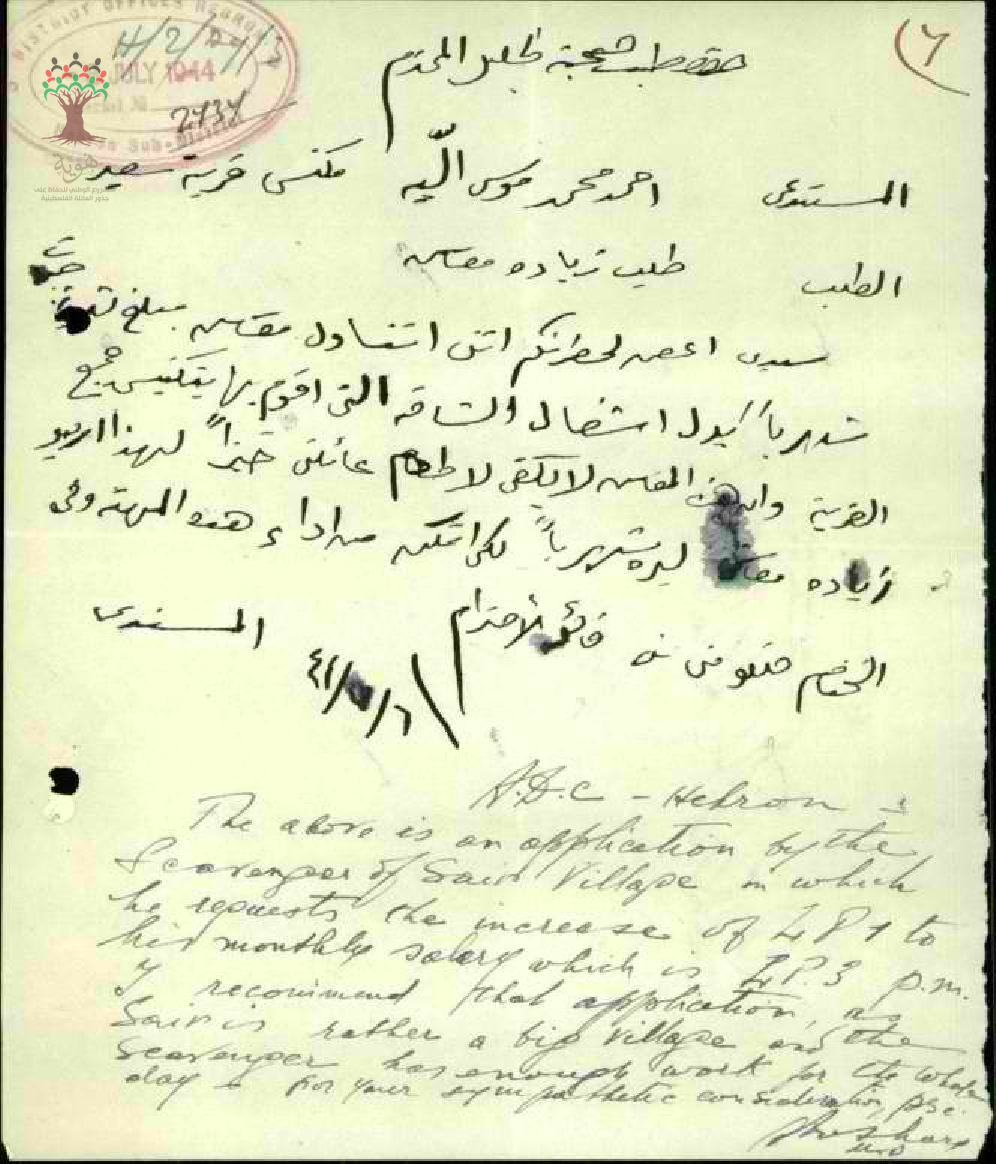 DISTRICT OFFICES HEBRON
H/2/24/2
JULY 1944
2434
Sub-District
هوية
المشروع الوطني للحفاظ على
جذور العائلة الفلسطينية
(٦
حضرة طبيب صحة الخليل المحترم
المستدعي احمد محمد موسى مكنس قرية سعير
الطلب طلب زياده معاش
سيدي اعرض لحضرتكم انني اتناول معاش مبلغ ثلاثة جنيهات
شهرياً بدل اشغال الشاقه التي اقوم بها بتكنيس جميع
القرية وان هذا المعاش لا يكفي لاطعام عائلتي خبزاً لهذا اريد
زياده معاش ليره شهرياً لكي اتمكن من اداء هذه المهنة وفي
الختام تفضلوا فائق الاحترام
المستدعي
A.D.C - Hebron :
The above is an application by the
Scavenger of Sair Village in which
he requests the increase of LP1 to
his monthly salary which is LP.3 p.m.
I recommend that application, as
Sair is rather a big village and the
Scavenger has enough work for the whole
day. For your sympathetic consideration, pse.
M.O